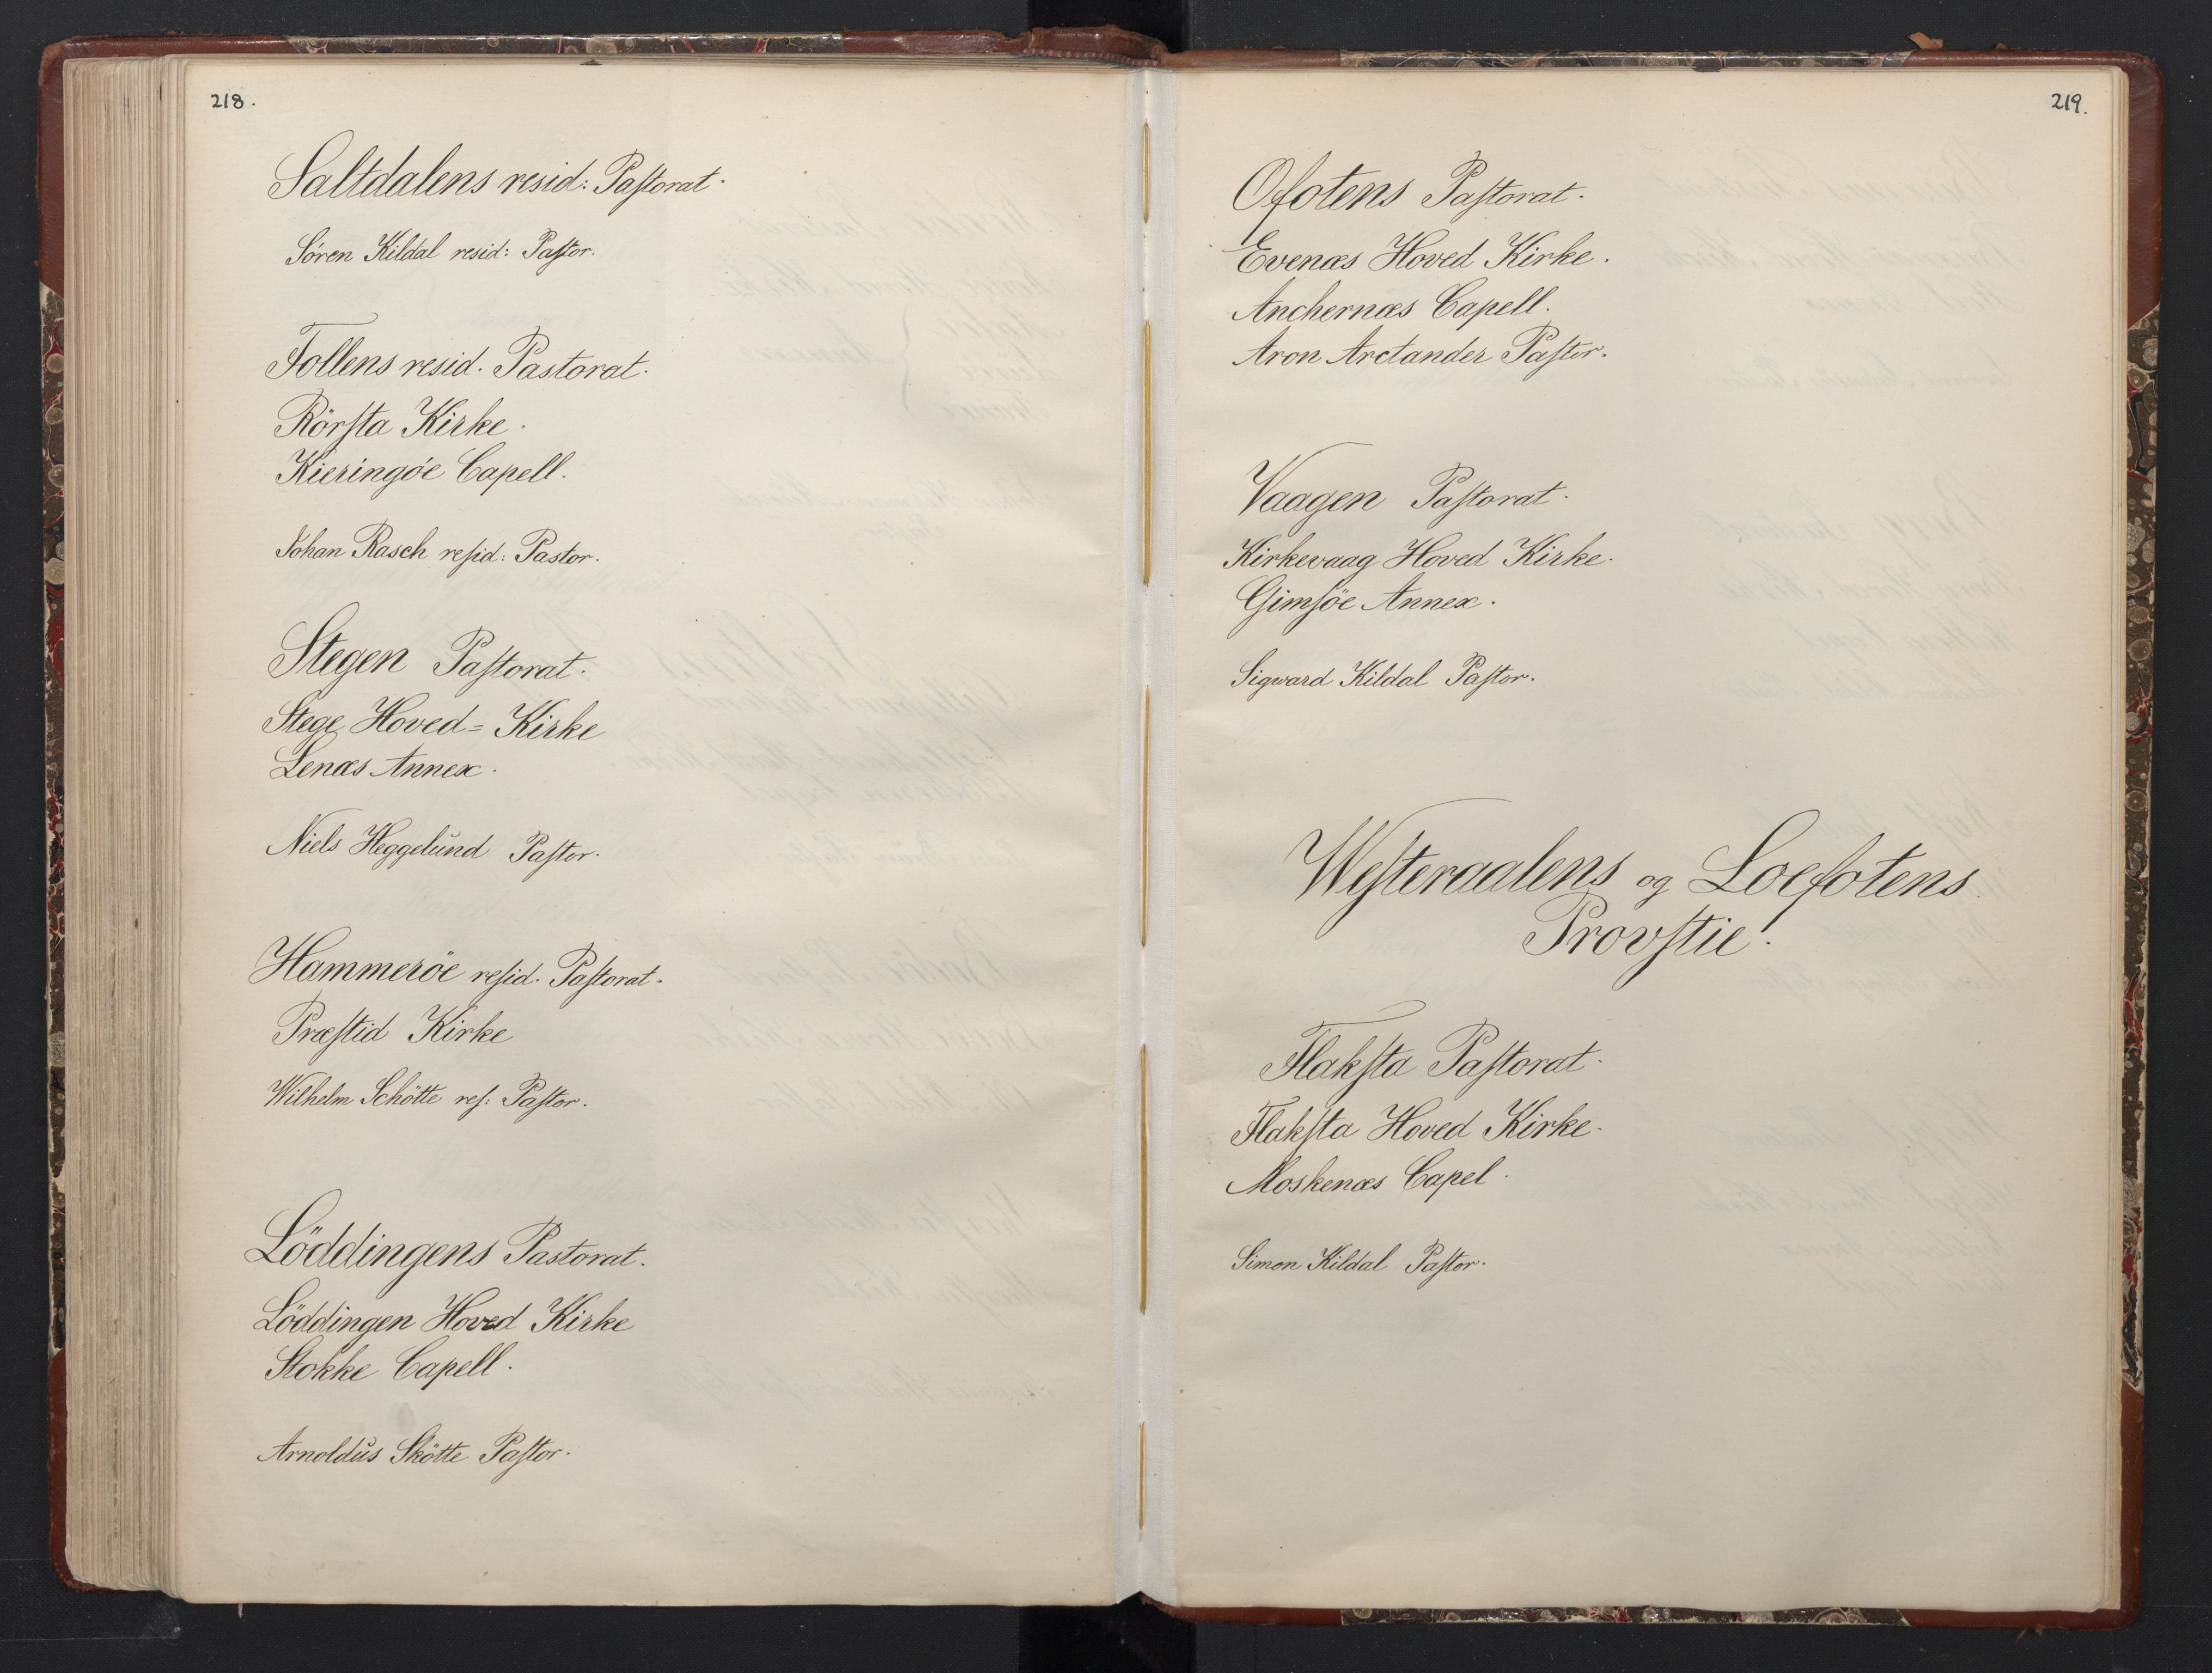 218.
Saltdalens resid: Paſtorat.
Sören Kildal resid: Paſtor.
Follens resid. Pastorat.
Rörſta Kirke.
Kieringöe Capell.
Johan Rasch reſid: Pastor.
Stegen Paſtorat.
Stege Hoved= Kirke
Lenæs Annex.
Niels Heggelund Paſtor.
Hammeröe reſid. Paſtorat.
Præſtid Kirke
Wilhelm Schötte reſ: Paſtor.
Löddingens Pastorat.
Löddingen Hoved Kirke
Stokke Capell.
Arnoldus Skötte Paſtor.
219.
Ofotens Paſtorat.
Evenæs Hoved Kirke.
Anchernæs Capell.
Aron Arctander Paſtor.
Vaagen Paſtorat.
Kirkevaag Hoved Kirke.
Gimſöe Annex.
Sigward Kildal Paſtor.
Weſteraalens og Loefotens
Provſtie.
Flakſta Paſtorat.
Flakſta Hoved Kirke.
Moskenæs Capel.
Simon Kildal Paſtor.